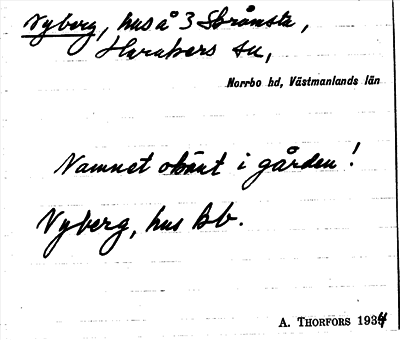 Nyberg, hus å 3 Strömsta,
Harakers sn,
Norrbo hd, Västmanlands län
Namnet okänt i gården!
Nyberg, hus bb.
A. THORFORS 1934